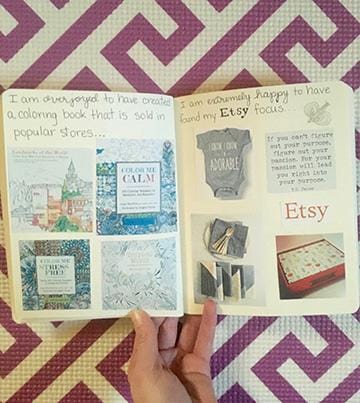 I am overjoyed to have created
a coloring book that is sold in
popular stores...
Landmarks of the World
COLOR ME
CALM
COLOR ME
STRESS
FREE
I am extremely happy to have
found my Etsy focus...
I KNOW I KNOW
ADORABLE
If you can't figure
out your purpose,
figure out your
passion. For your
passion will lead
you right into
your purpose.
Etsy